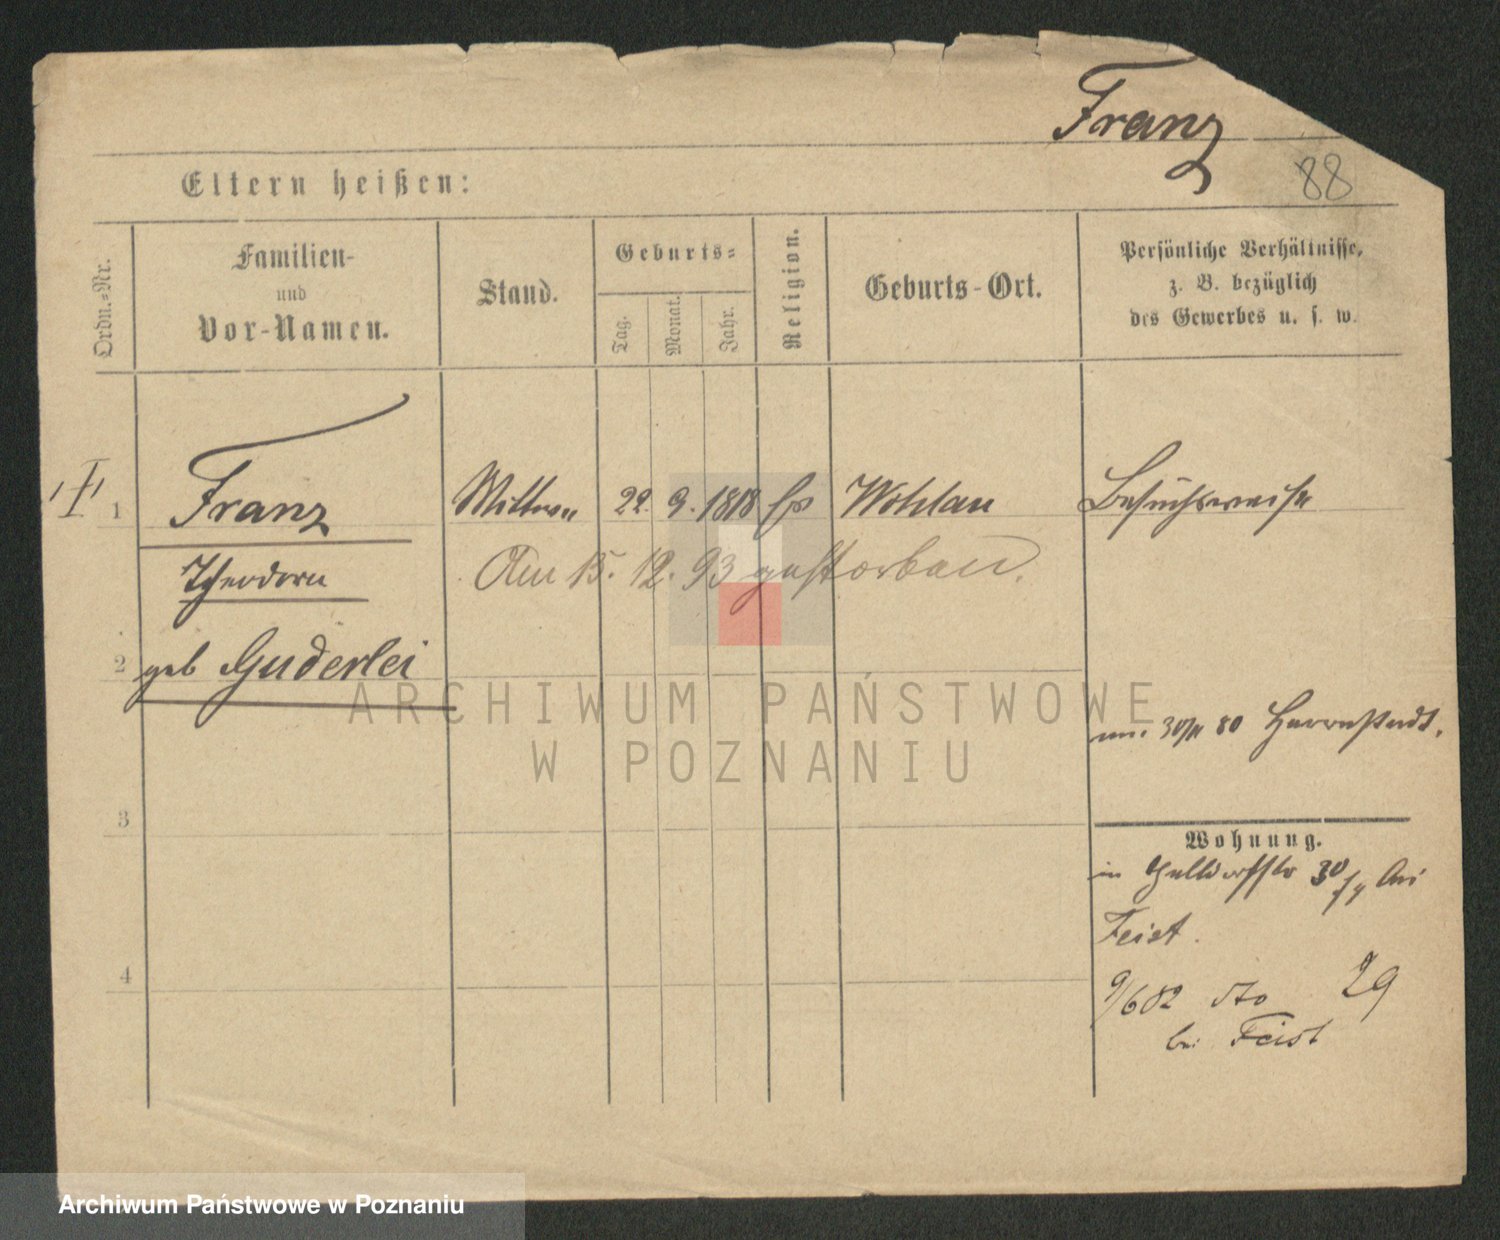 Franz
88
Eltern heißen:
Ordn.-Nr.
Familien-
und
Vor-Namen.
Stand.
Geburts-
Tag.
Monat.
Jahr.
Religion.
Geburts-Ort.
Persönliche Verhältnisse,
z. B. bezüglich
des Gewerbes u. s. w.
1 Franz Wittwe 22. 9. 1818 Wohlau Besuchsweise
Theodora
Am 15. 12. 93 gestorben.
2 geb Guderlei
80 Herrnstadt.
3
Wohnung.
in 30/4 bei
Feist.
4
9/6 82 dto 29
bei Feist
ARCHIWUM PAŃSTWOWE
W POZNANIU
Archiwum Państwowe w Poznaniu